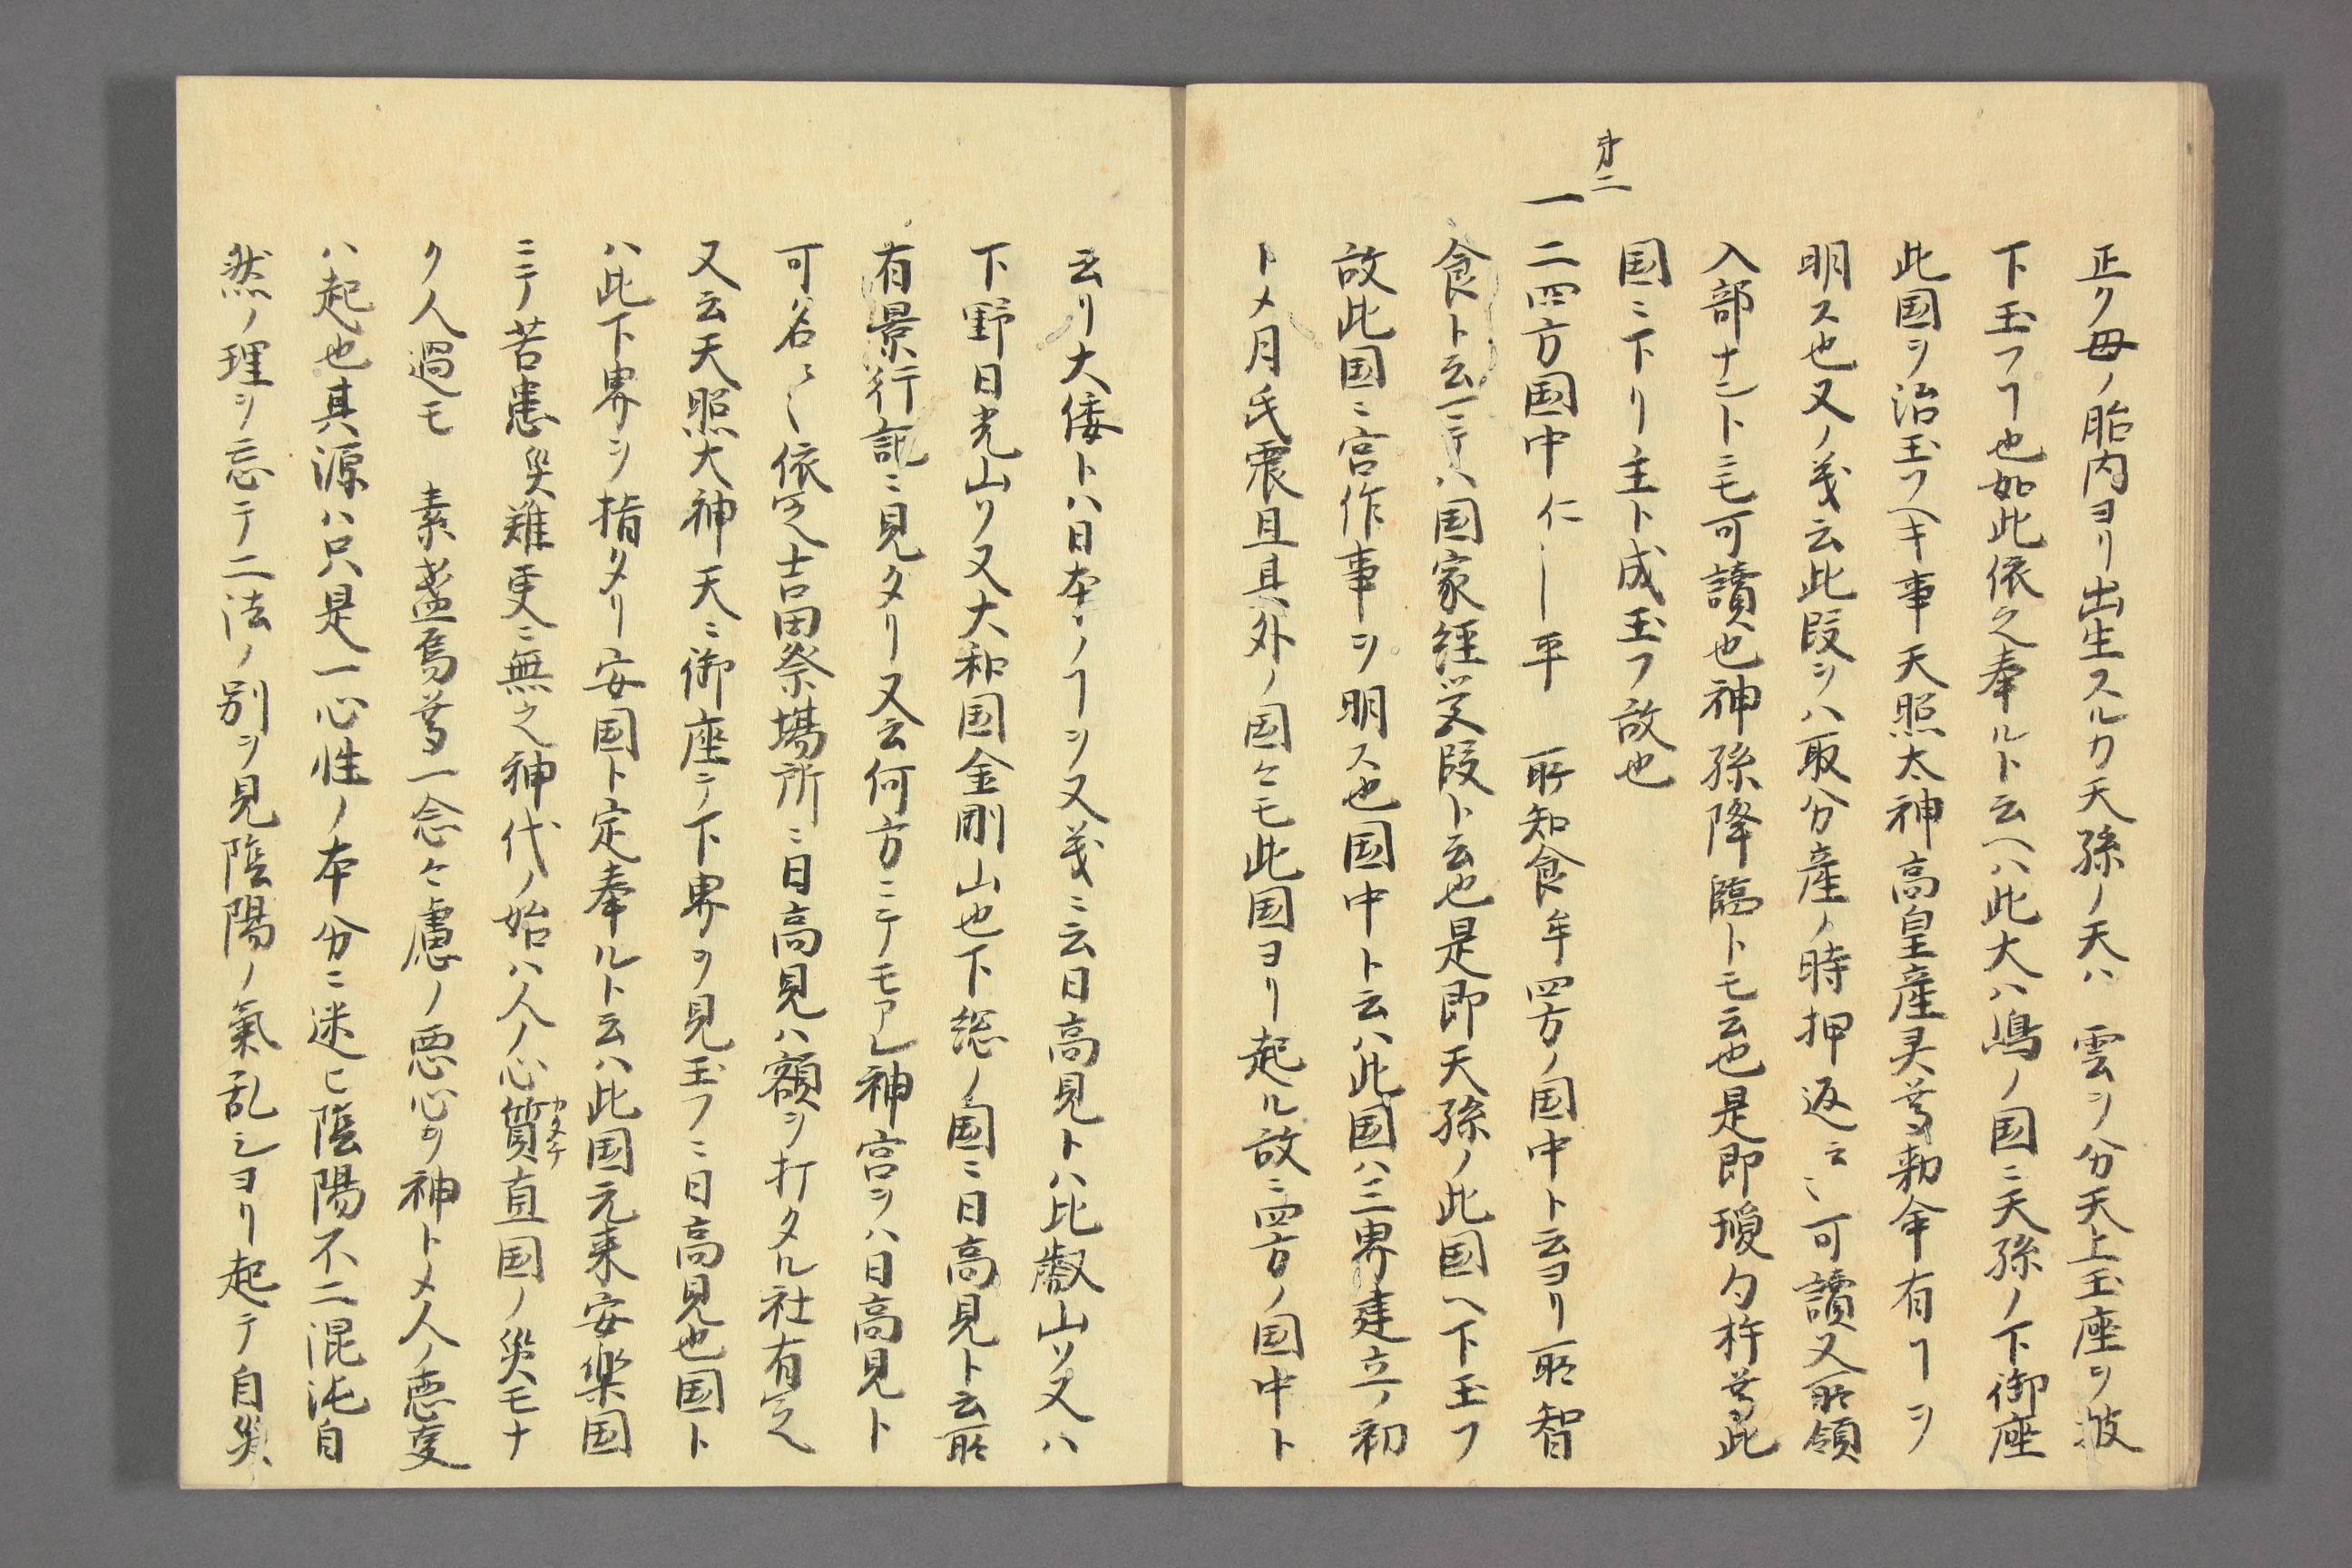 正ク母ノ胎内ヨリ出生スルカ天孫ノ天ハ雲ヲ分天上玉座ヲ披
下玉フヿ也如此依之奉ルト云ヘハ此大ハ嶋ノ国ニ天孫ノ下御座
此国ヲ治玉フヘキ事天照太神高皇産灵尊勅命有ヿヲ
明ス也又ノ義云此段ヲハ取分産ノ時押返ミミ可讀又所領
入部ナントニモ可讀也神孫降臨トモ云也是即瓊勺杵尊此
国ニ下リ主ト成玉フ故也
才二
一二四方国中仁ー平 所知食牟四方ノ国中ト云ヨリ所智
食ト云ニテハ国家経営段ト云也是即天孫ノ此国ヘ下玉フ
故此国ニ宮作事ヲ明ス也国中ト云ハ此国ハ三界建立ノ初
トメ月氏震旦其外ノ国々モ此国ヨリ起ル故ニ四方ノ国中ト
云リ大倭トハ日本ノヿヲ又義ニ云日高見トハ比叡山ソ又ハ
下野日光山ソ又大和国金剛山也下総ノ国ニ日高見ト云所
有景行記ニ見タリ又云何方ニテモアレ神宮ヲハ日高見ト
可名云々依之吉田祭場所ニ日高見ハ額ヲ打タル社有之
又云天照大神天ニ御座テ下界ヲ見玉フニ日高見也国ト
ハ此下界ヲ指タリ安国ト定奉ルト云ハ此国元来安楽国
ニテノ苦患災難更ニ無之神代ノ始ハ人ノ心質直国ノ災モナ
カタチ
ク人過モ 素盞烏尊一念々慮ノ悪心ヲ神トメ人ノ悪変
ハ起也其源ハ只是一心性ノ本分ニ迷ヒ陰陽不二混沌自
然ノ理ヲ忘テ二法ノ別ヲ見陰陽ノ氣乱シヨリ起テ自災